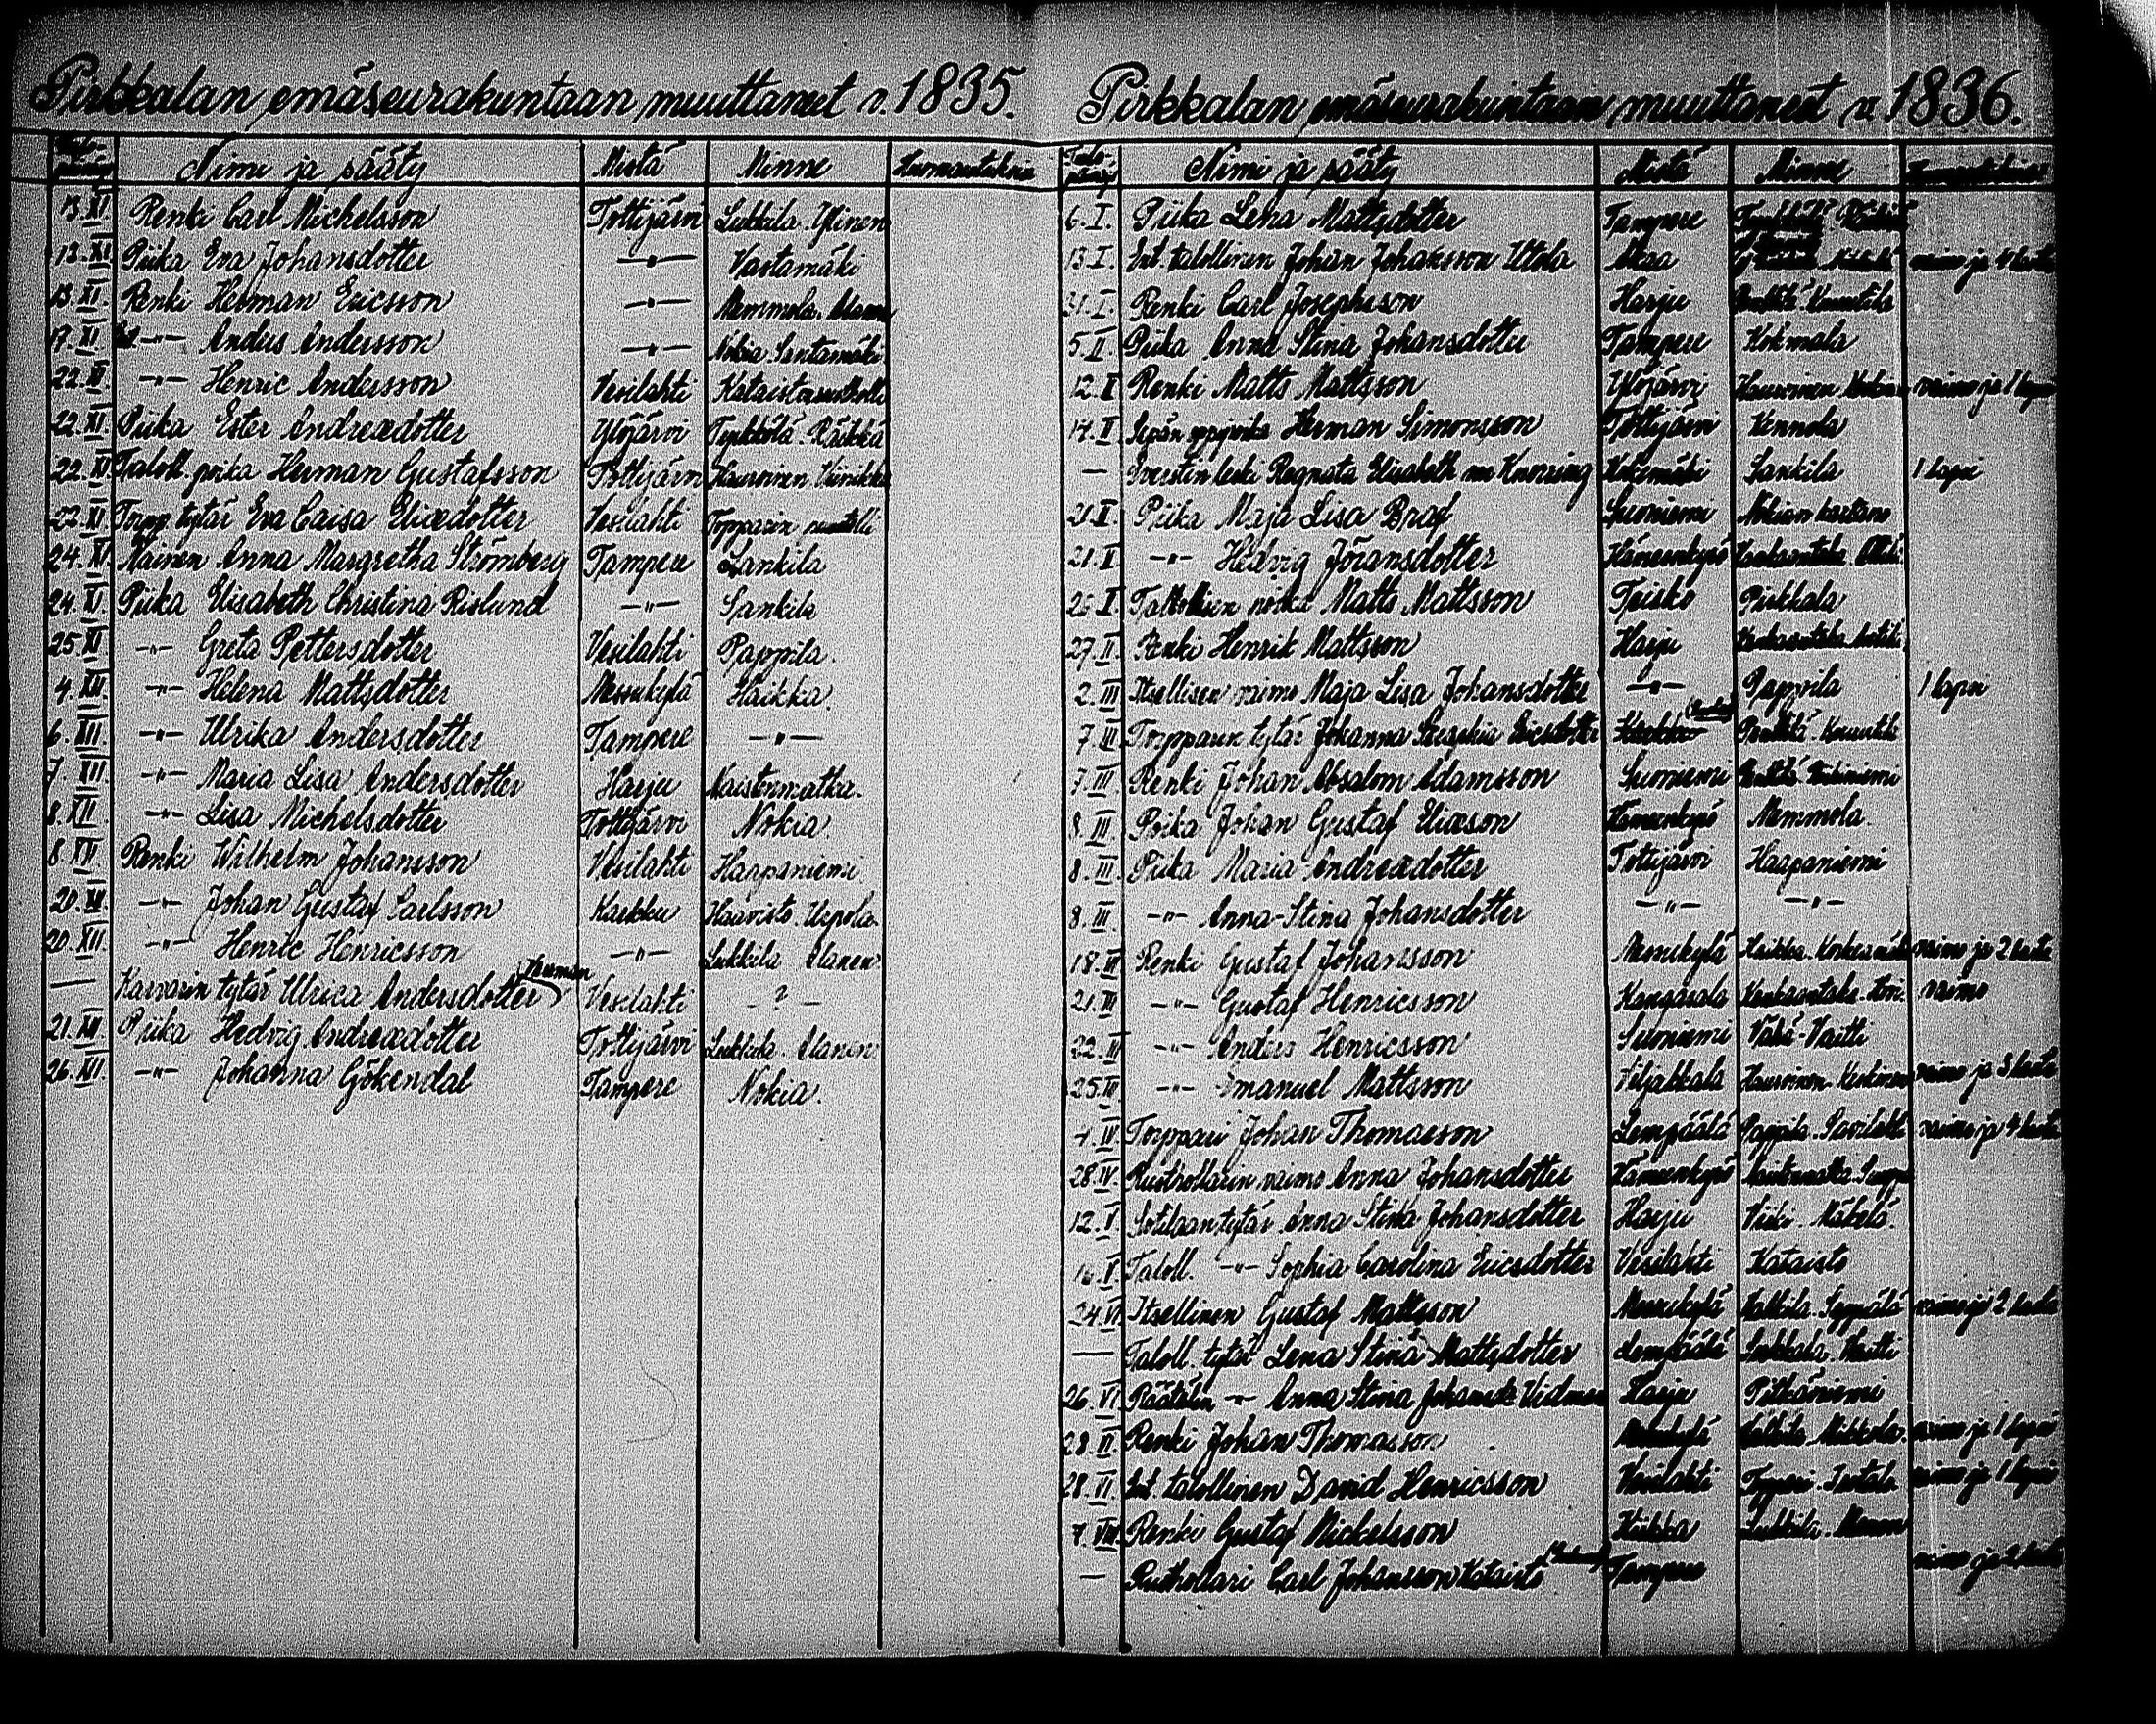 Pirkkalan emäseurakuntaan muuttaneet v. 1835.
Nimi ja sääty Mistä Minne Huomautuksia
13.XI Renki Carl Michelsson Tottijärvi Lukkila. Ylinen
13.XI Piika Eva Johansdotter —"— Vastamäki
13.XI. Renki Herman Ericsson —"— Memmola. Alanen
17.XI. —"— Anders Andersson —"— Nokia Santamäki
22.XI —"— Henric Andersson Vesilahti Kataiston
22.XI Piika Ester Andreædotter Ylöjärvi Penkkilä
22.XI Taloll. poika Herman Gustafsson Tottijärvi Hauroinen
22.XI Torpp. tytär Eva Caisa Eliædotter Vesilahti Topparin
24.XI Nainen Anna Margretha Strömberg Tampere Sankila
24.XI. Piika Elisabeth Christina Rislund —"— Sankila
25.XI —"— Greta Pettersdotter Vesilahti Pappila.
4.XII. —"— Helena Mattsdotter Messukylä Haikka.
6.XII. —"— Ulrika Andersdotter Tampere —"—
7.XII. —"— Maria Lisa Andersdotter Harju Naistenmatka.
8.XII. —"— Lisa Michelsdotter Tottijärvi Nokia.
8.XII. Renki Wilhelm Johansson Vesilahti Haapaniemi.
20.XII. —"— Johan Gustaf Carlsson Karkku Haavisto. Uspola.
20.XII. —"— Henric Henricsson —"— Lukkila Alanen.
— Karvarin tytär Ulrica Andersdotter Vesilahti - ? -
21.XII. Piika Hedvig Andreædotter Tottijärvi Lukkila. Alanen.
26.XII. —"— Johanna Gökendal Tampere Nokia.
Pirkkalan emäseurakuntaan muuttaneet v. 1836.
Tulo-päivä Nimi ja sääty Mistä Minne
6.I. Piika Lena Mattsdotter Tampere
13.I. Ent. talollinen Johan Johansson Uttola Akaa vaimo ja 4 lasta
21.I. Renki Carl Josephsson Harju
5.II. Piika Anna Stina Johansdotter Tampere Kohmala
12.II Renki Matts Mattsson Ylöjärvi Hauroinen vaimo ja 1 lapsi
14.II Sepän oppipoika Herman Simonsson Tottijärvi Kennola
— Everstin leski Regnata Elisabeth von Knorring Kokemäki Sankila 1 lapsi
21.II. Piika Maja Lisa Braf Suoniemi Nokian kartano
21.II —"— Hedvig Jöransdotter Hämeenkyrö Kankaantaka
26.II Talollisen poika Matts Mattsson Teisko Pirkkala
27.II. Renki Henrik Mattsson Harju Kankaantaka
2.III Itsellisen vaimo Maja Lisa Johansdotter —"— Pappila 1 lapsi
7.III Torpparin tytär Johanna Sophia Ericsdotter
7.III. Renki Johan Absalom Adamsson Suoniemi
8.III Poika Johan Gustaf Eliæson Hämeenkyrö Memmola.
8.III. Piika Maria Andreædotter Tottijärvi Haapaniemi
8.III. —"— Anna-Stina Johansdotter —"— —"—
18.III Renki Gustaf Johansson Messukylä Haikka. vaimo ja 2 lasta
21.III —"— Gustaf Henricsson Kangasala Kankaantaka. vaimo
22.III —"— Anders Henricsson Suoniemi Vähä-Vaitti
25.III. —"— Emanuel Mattsson Viljakkala Hauroinen vaimo ja 3 lasta
4.IV Torppari Johan Thomasson Lempäälä Pappila. vaimo ja 4 lasta
28.IV. Rusthollarin vaimo Anna Johansdotter Hämeenkyrö Naistenmatka.
12.V Sotilaan tytär Anna Stina Johansdotter Harju Viiki. Mäkelä.
16.V Taloll. —"— Sophia Carolina Ericsdotter Vesilahti Kataisto
24.VI. Itsellinen Gustaf Mattsson Messukylä Kalkila. vaimo ja 2 lasta
— Taloll. tytär Lena Stina Mattsdotter Lempäälä Sorkkala. Vaitti
26.VI Räätälin —"— Anna Stina Johansdr Widman Harju Pitkäniemi
28.VI. Renki Johan Thomasson Messukylä Mikkola. vaimo ja 1 lapsi
28.VI. Ent. talollinen David Henricsson Vesilahti vaimo ja 1 lapsi
7.VIII. Renki Gustaf Mickelsson Kiikka Lukkila. Alanen
— Rusthollari Carl Johansson Kataisto Tampere vaimo ja 2 lasta